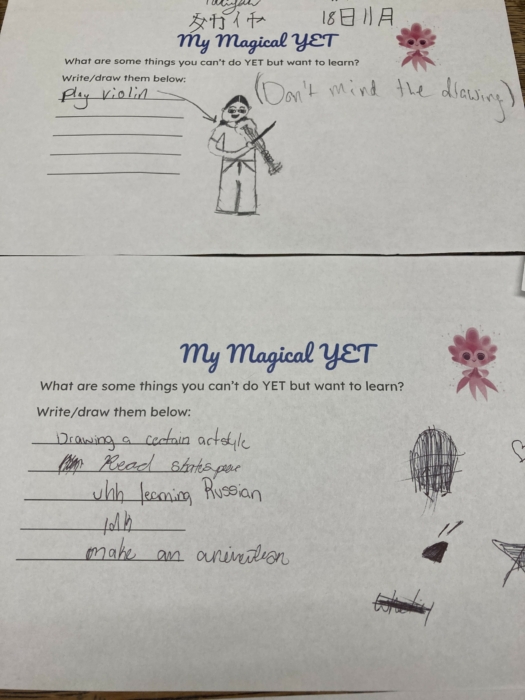 18日11月
My Magical YET
What are some things you can't do YET but want to learn?
Write/draw them below:
Play violin
(Don't mind the drawing)
My Magical YET
What are some things you can't do YET but want to learn?
Write/draw them below:
Drawing a certain artstyle
Read
uhh learning Russian
idk
make an animation